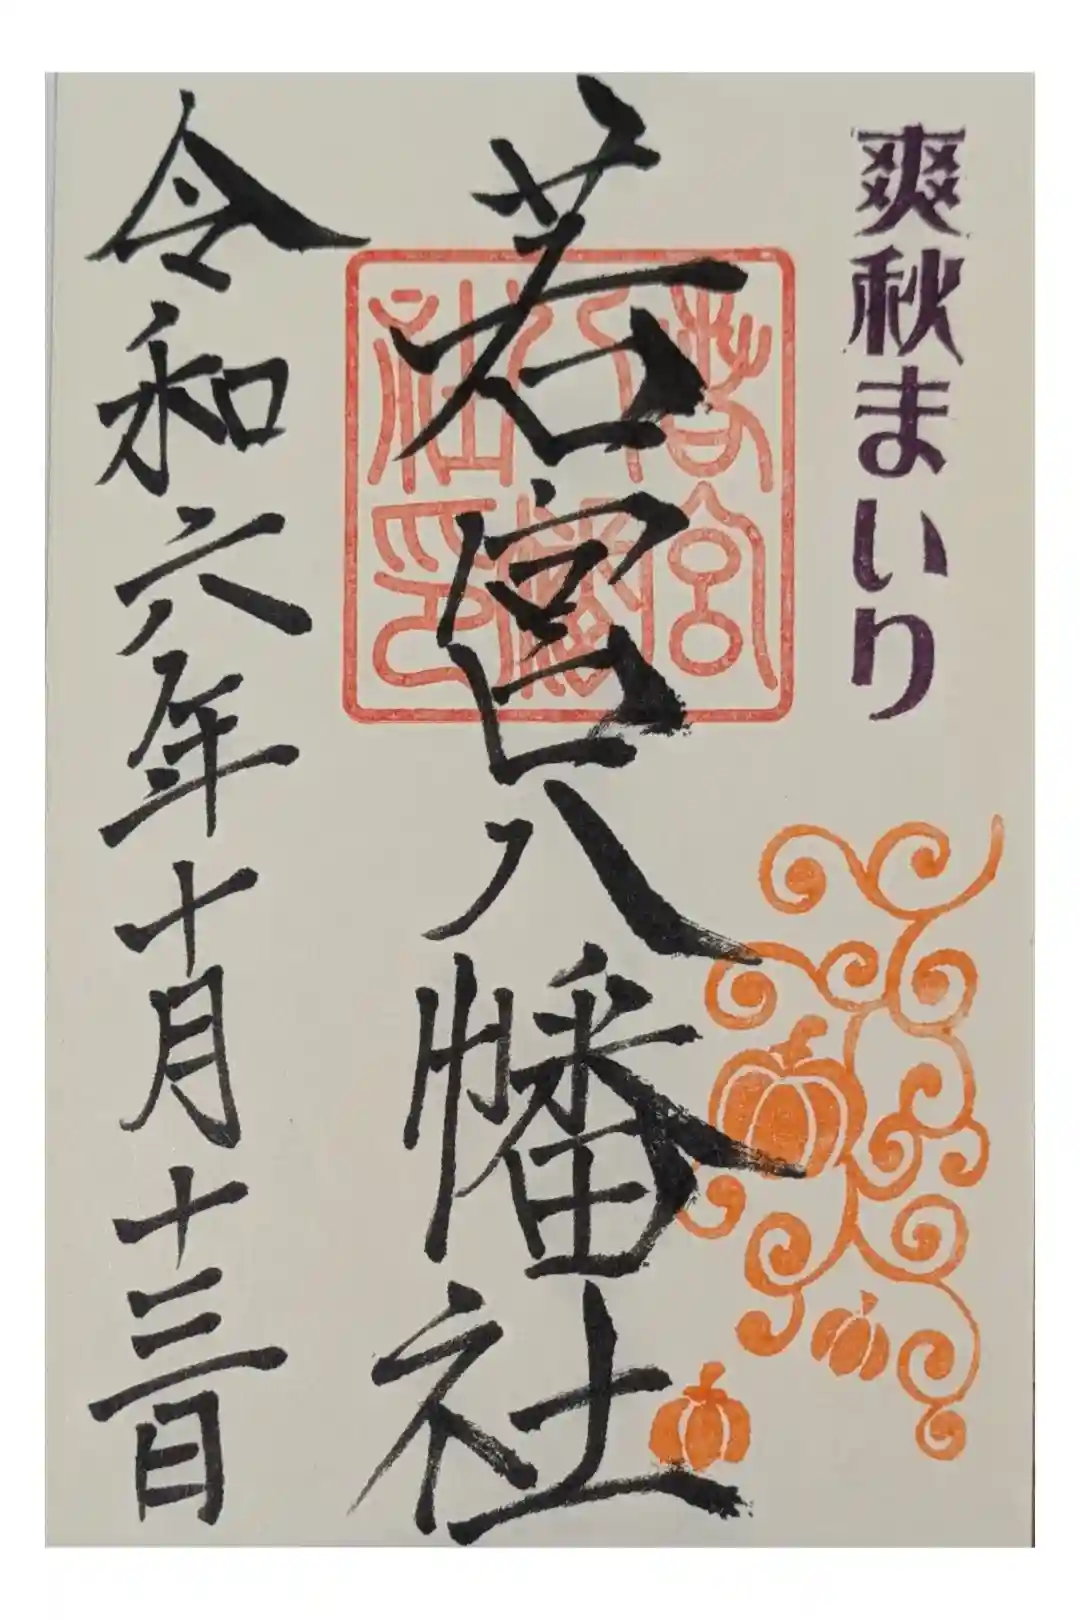 爽秋まいり
若宮八幡社
若宮八幡社印
令和六年十月十三日